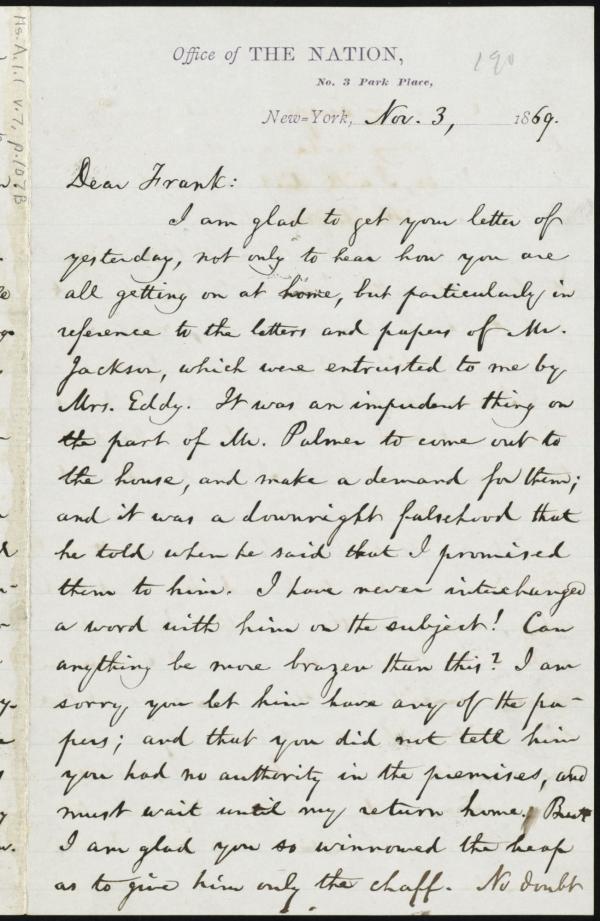 Ms. A. 1.1 v.7, p.107B
Office of THE NATION,
190
No. 3 Park Place,
New-York, Nov. 3, 1869.
Dear Frank:
I am glad to get your letter of
yesterday, not only to hear how you are
all getting on at home, but particularly in
reference to the letters and papers of Mr.
Jackson, which were entrusted to me by
Mrs. Eddy. It was an impudent thing on
the part of Mr. Palmer to come out to
the house, and make a demand for them;
and it was a downright falsehood that
he told when he said that I promised
them to him. I have never interchanged
a word with him on the subject! Can
anything be more brazen than this? I am
sorry you let him have any of the pa-
pers; and that you did not tell him
you had no authority in the premises, and
must wait until my return home. But
I am glad you so winnowed the heap
as to give him only the chaff. No doubt